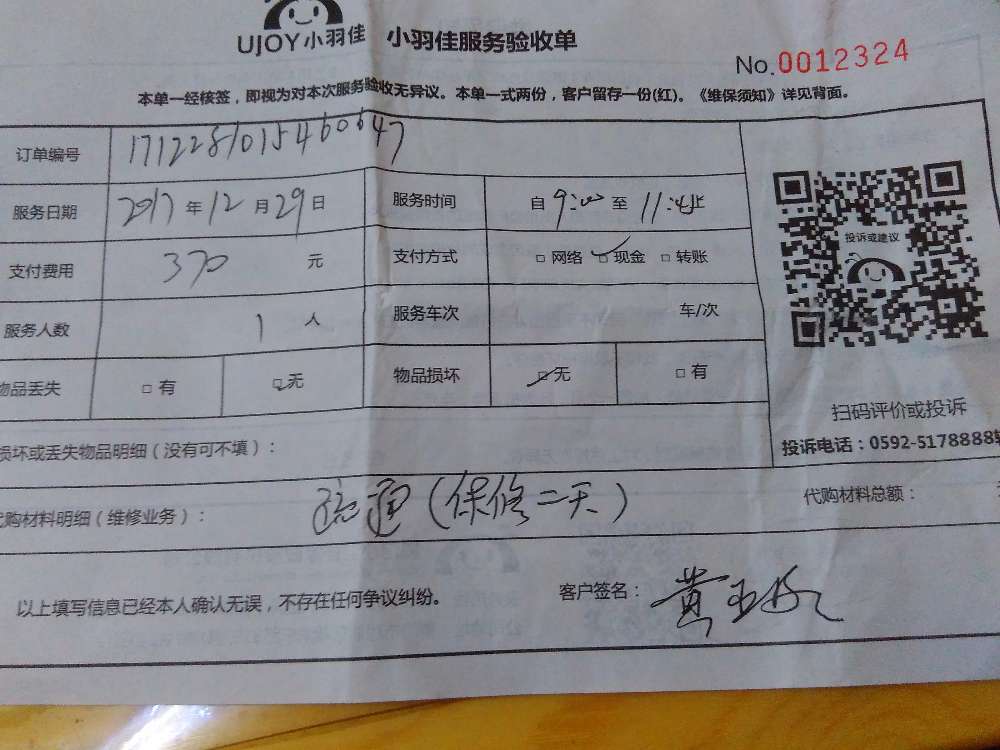 UJOY小羽佳 小羽佳服务验收单
No.0012324
本单一经核签，即视为对本次服务验收无异议。本单一式两份，客户留存一份(红)。《维保须知》详见背面。
订单编号 171228101546064​7
服务日期 2017年12月29日 服务时间 自9:00至11:00止
支付费用 370 元 支付方式 □网络 □现金 □转账
服务人数 1 人 服务车次 车/次
物品丢失 □有 □无 物品损坏 □无 □有
投诉或建议
扫码评价或投诉
投诉电话：0592-5178888转
损坏或丢失物品明细（没有可不填）：
代购材料明细（维修业务）： 疏通（保修二天） 代购材料总额：
以上填写信息已经本人确认无误，不存在任何争议纠纷。 客户签名：黄玉